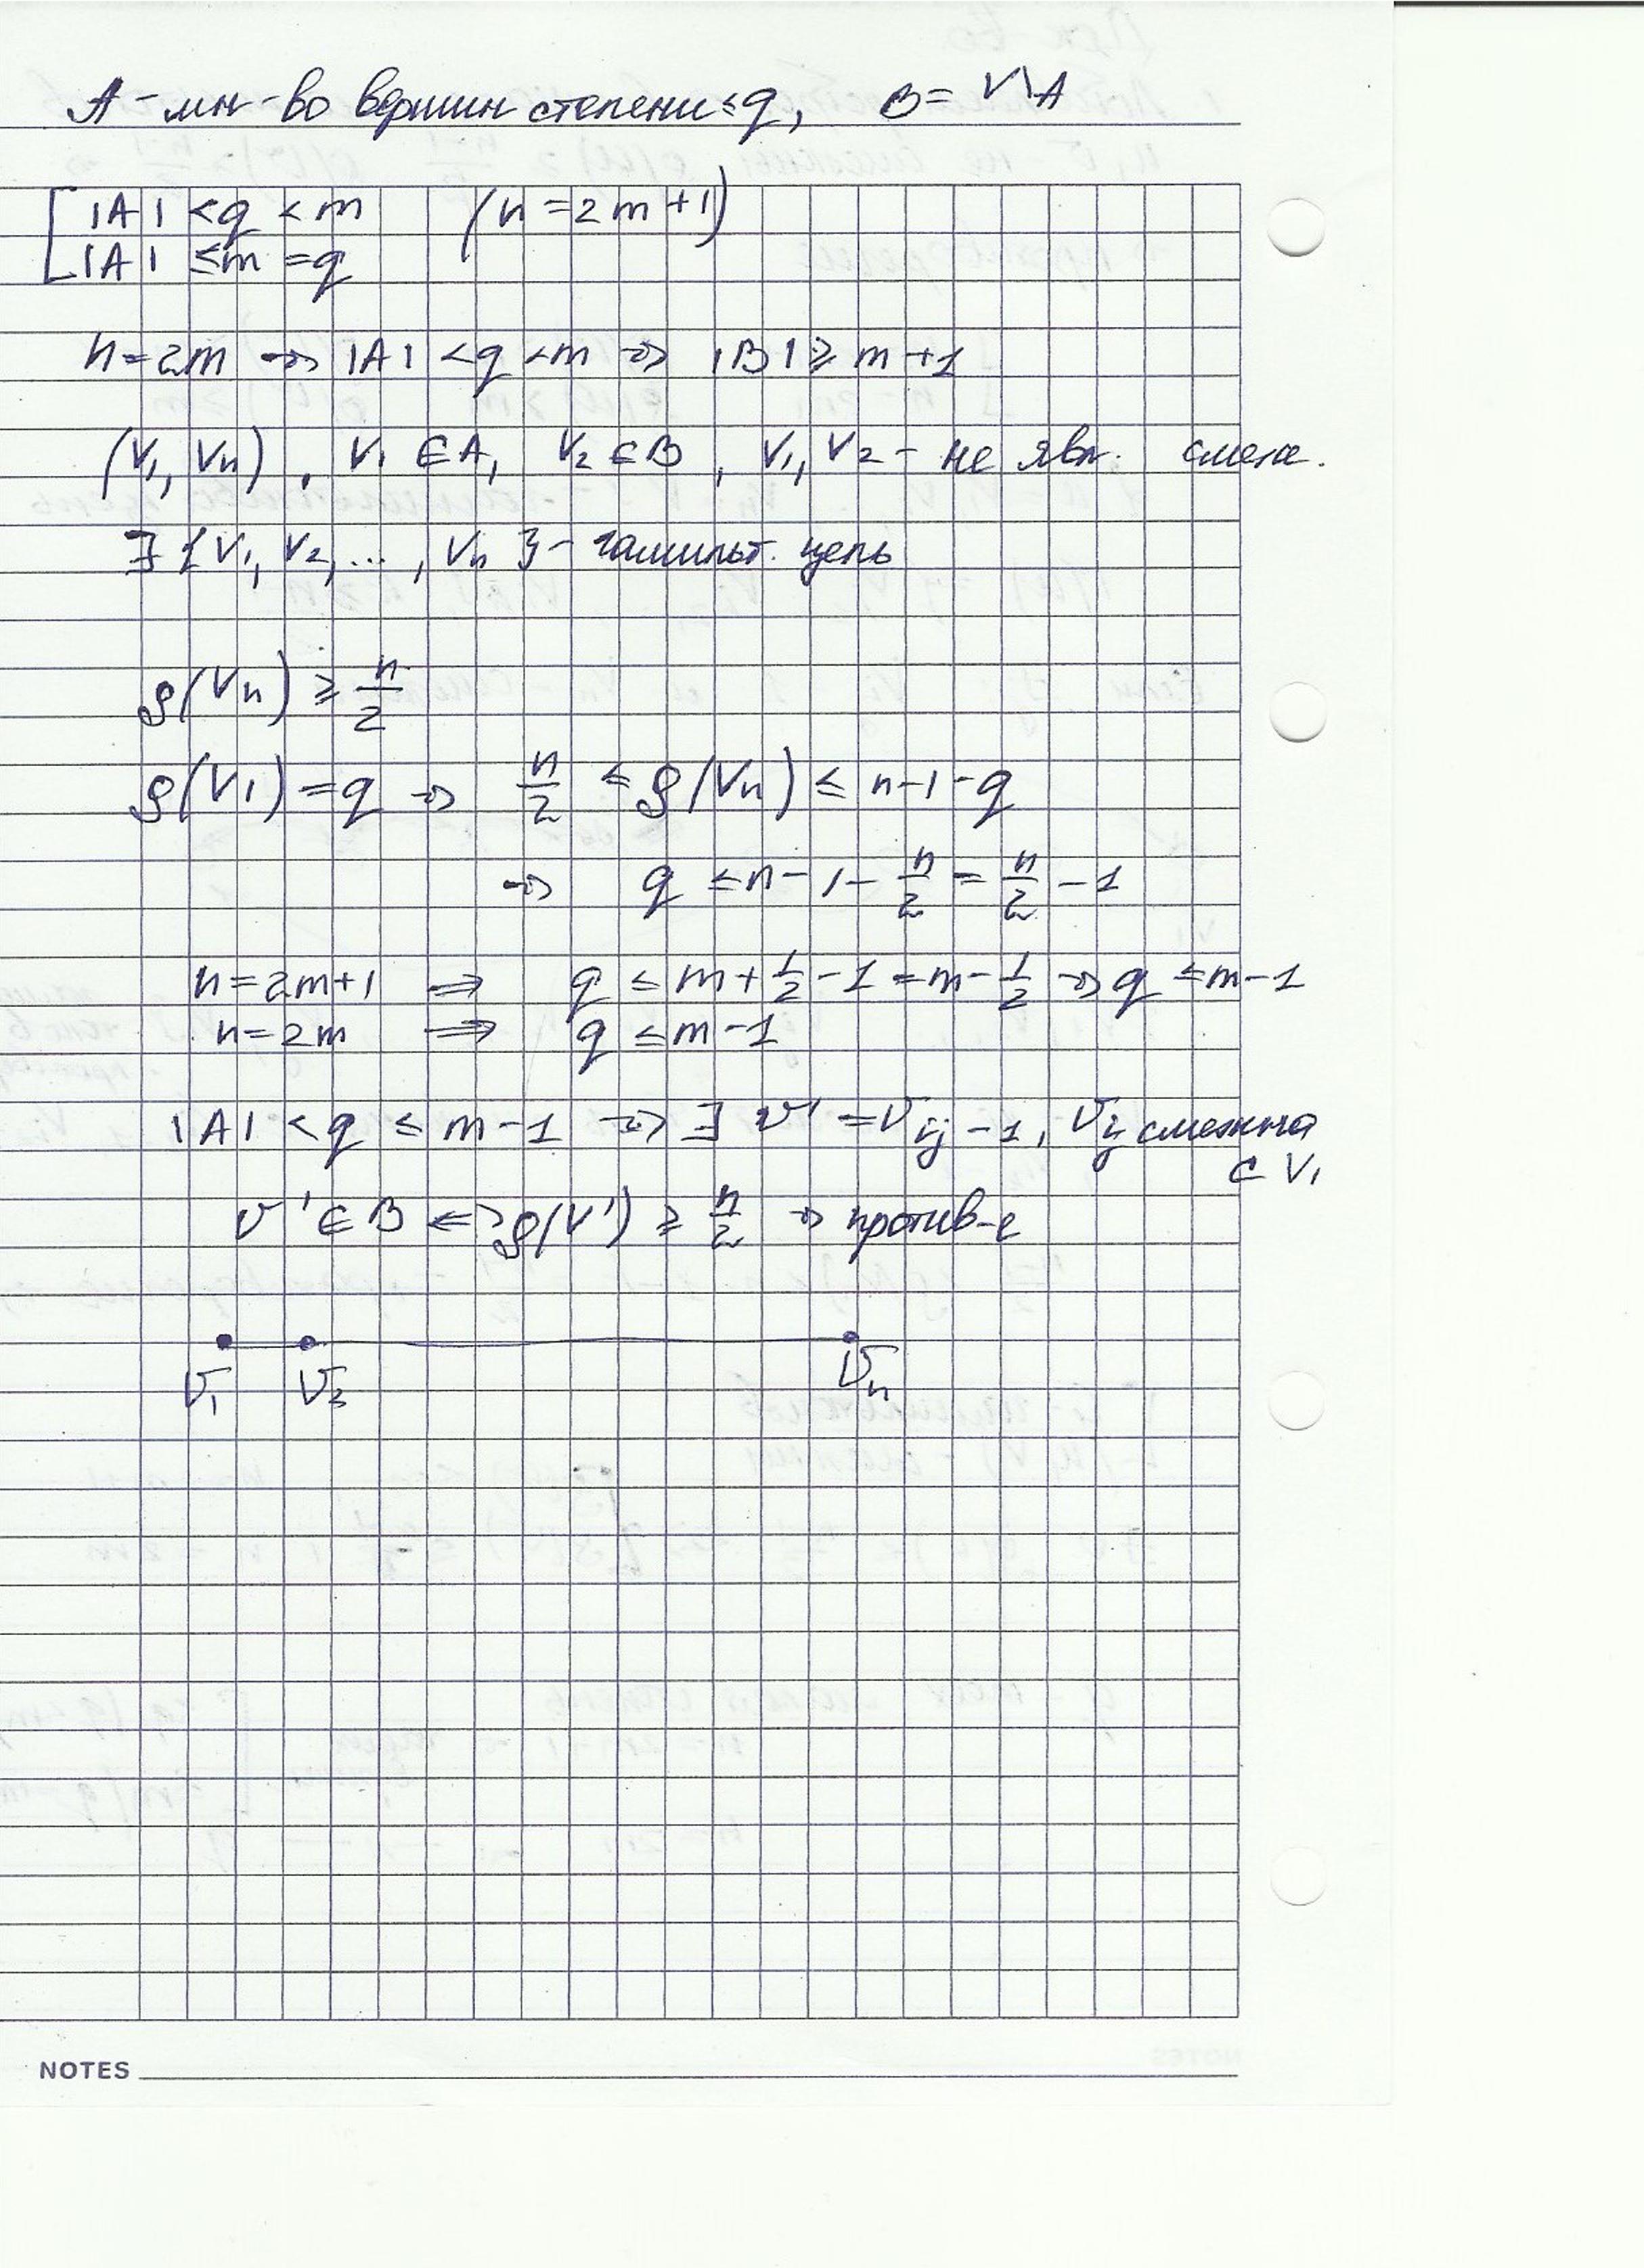 A – мн-во вершин степени ≤ q, B = V \ A
|A| < q < m (n = 2m+1)
|A| ≤ m = q
n = 2m ⇒ |A| < q < m ⇒ |B| ≥ m+1
(V₁, Vₙ), V₁ ∈ A, V₂ ∈ B, V₁, V₂ – не явл. смеж.
∃ {V₁, V₂, ..., Vₙ} – гамильт. цепь
ρ(Vₙ) ≥ n/2
ρ(V₁) = q ⇒ n/2 ≤ ρ(Vₙ) ≤ n-1-q
⇒ q ≤ n - 1 - n/2 = n/2 - 1
n = 2m+1 ⇒ q ≤ m + 1/2 - 1 = m - 1/2 ⇒ q ≤ m-1
n = 2m ⇒ q ≤ m-1
|A| < q ≤ m-1 ⇒ ∃ v' = v_{ij}-1, v_{ij} смежна
с V₁
v' ∈ B ⇔ ρ(V') ≥ n/2 ⇒ против-е
v₁ v₂ vₙ
NOTES